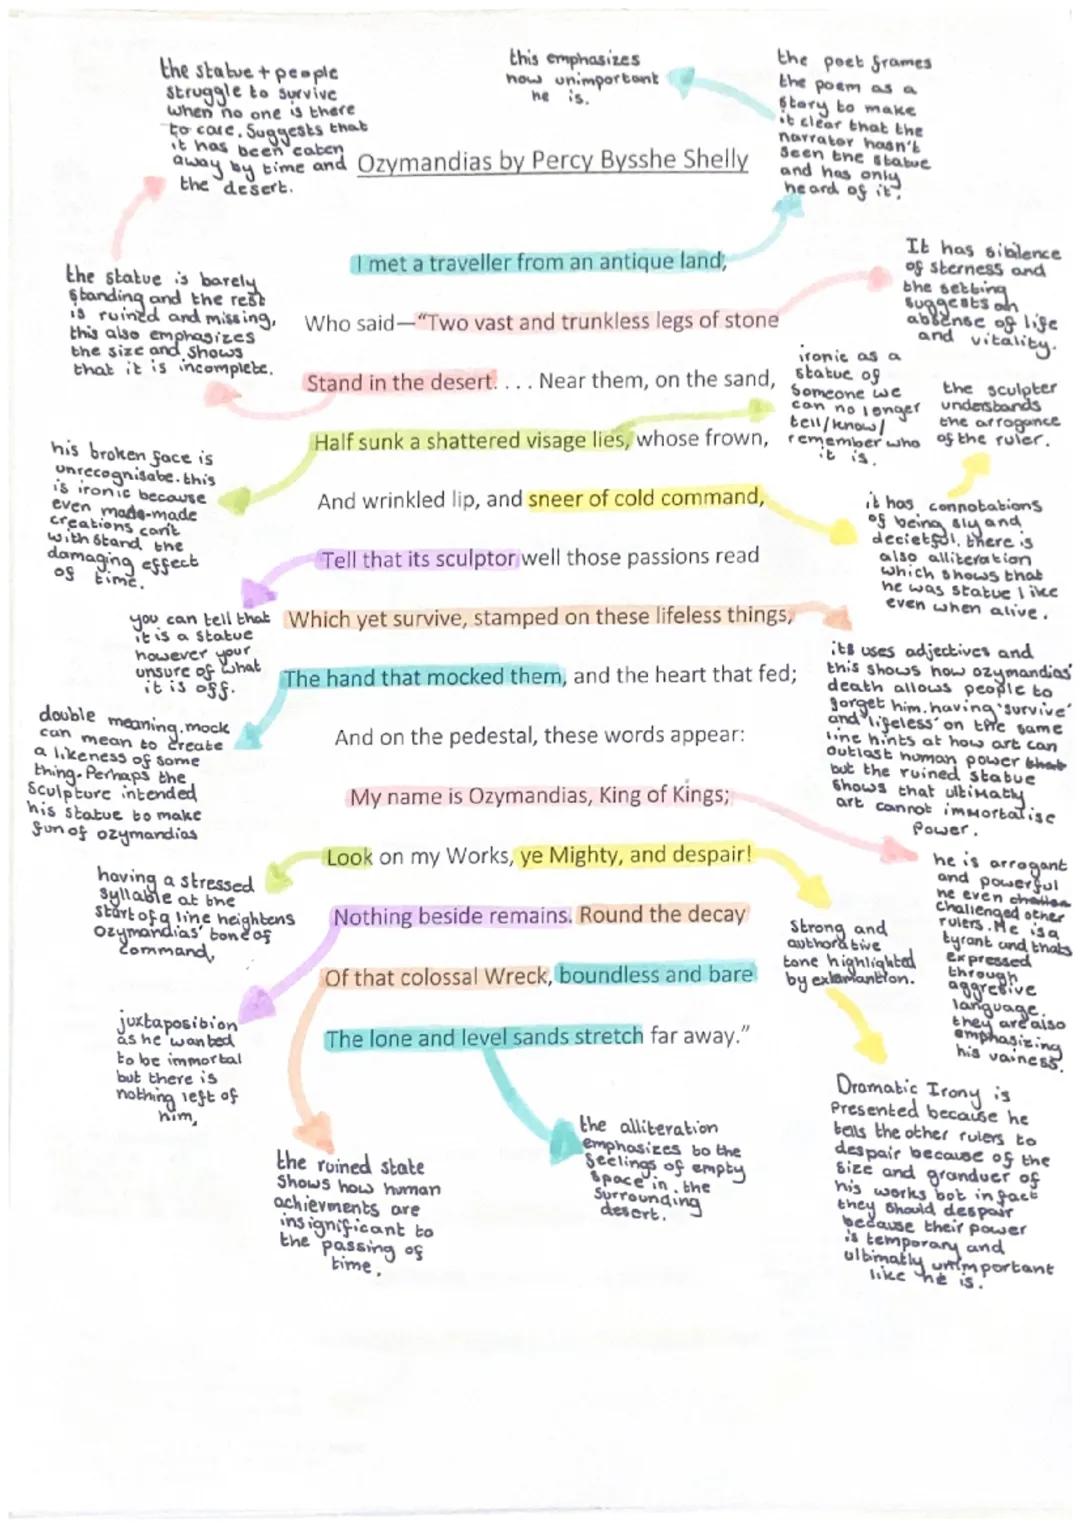 the statue + people
struggle to survive
when no one is there
to care. Suggests that
it has been eaten
away by time and
the desert.
this emphasizes
how unimportant
he is.
the poet frames
the poem as a
story to make
it clear that the
narrator hasn't
seen the statue
and has only
heard of it.
Ozymandias by Percy Bysshe Shelly
I met a traveller from an antique land,
Who said—"Two vast and trunkless legs of stone
Stand in the desert. . . . Near them, on the sand,
Half sunk a shattered visage lies, whose frown,
And wrinkled lip, and sneer of cold command,
Tell that its sculptor well those passions read
Which yet survive, stamped on these lifeless things,
The hand that mocked them, and the heart that fed;
And on the pedestal, these words appear:
My name is Ozymandias, King of Kings;
Look on my Works, ye Mighty, and despair!
Nothing beside remains. Round the decay
Of that colossal Wreck, boundless and bare
The lone and level sands stretch far away."
the statue is barely
standing and the rest
is ruined and missing,
this also emphasizes
the size and shows
that it is incomplete.
his broken face is
unrecognisabe. this
is ironic because
even made-made
creations can't
withstand the
damaging effect
of time.
you can tell that
it is a statue
however your
unsure of what
it is off.
double meaning. mock
can mean to create
a likeness of some
thing. Perhaps the
Sculpture intended
his statue to make
fun of ozymandias
having a stressed
syllable at the
start of a line heightens
Ozymandias' tone of
command,
juxtaposition
as he wanted
to be immortal
but there is
nothing left of
him,
It has siblence
of sterness and
the setting
suggests an
absense of life
and vitality.
ironic as a
statue of
someone we
can no longer
tell/know/
remember who
it is.
the sculpter
understands
the arrogance
of the ruler.
it has connotations
of being sly and
decietful. there is
also alliteration
which shows that
he was statue like
even when alive.
its uses adjectives and
this shows how ozymandias'
death allows people to
forget him. having 'survive'
and 'lifeless' on the same
line hints at how art can
outlast human power that
but the ruined statue
shows that ultimatly
art cannot immortalise
power.
he is arrogant
and powerful
he even challen
challenged other
rulers. He is a
tyrant and thats
expressed
through
aggresive
language.
they are also
emphasizing
his vainess.
Strong and
authorative
tone highlighted
by exlamantion.
Dramatic Irony is
Presented because he
tells the other rulers to
despair because of the
size and granduer of
his works but in fact
they should despair
because their power
is temporary and
ultimatly unimportant
like he is.
the ruined state
shows how human
achievments are
insignificant to
the passing of
time.
the alliteration
emphasizes to the
feelings of empty
space in the
surrounding
desert.